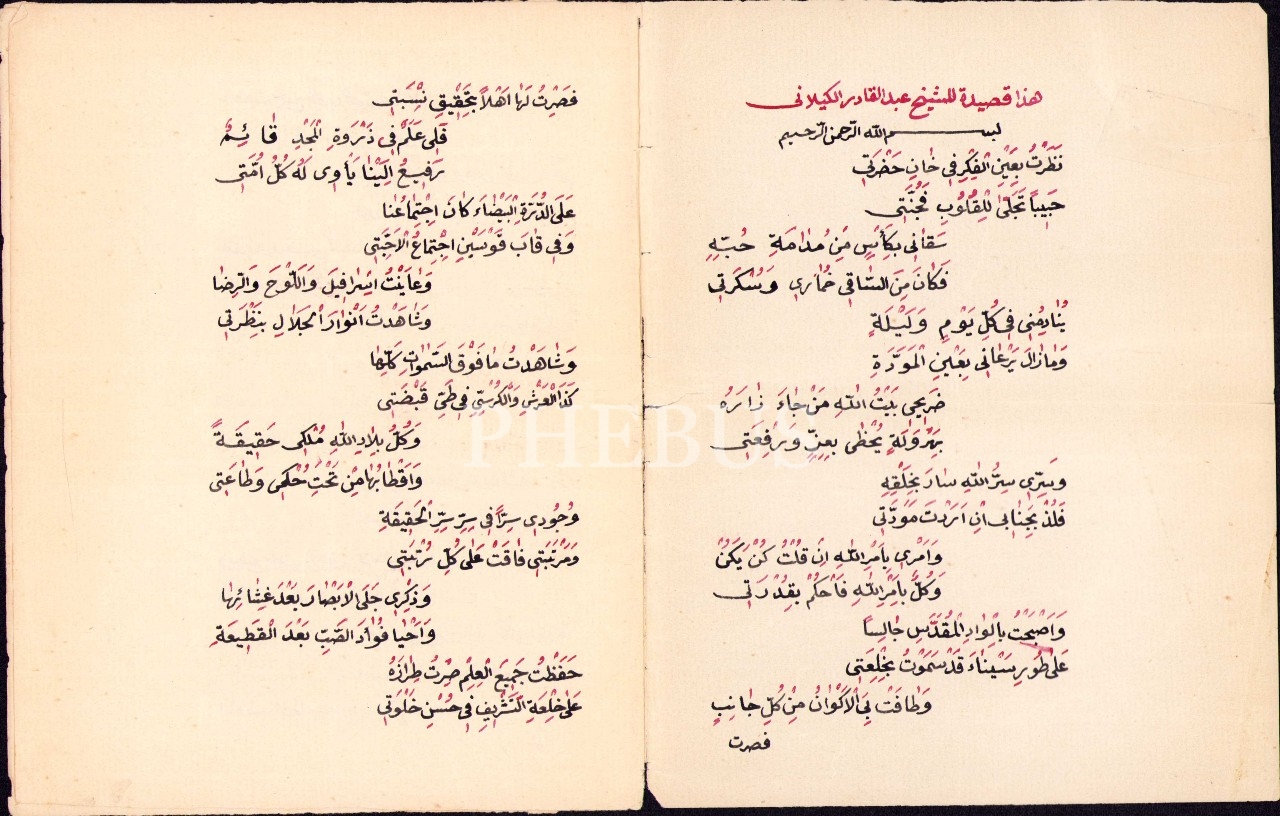 هذا قصيدة للشيخ عبد القادر الكيلانى
بسم الله الرّحمن الرّحيم
نَظَرْتُ بِعَيْنِ الْفِكْرِ فِى حَانِ حَضْرَتِى
حَبِيبًا تَجَلَّى لِلْقُلُوبِ فَجُنَّتِى
سَقَانِى بِكَأْسٍ مِنْ مُدَامَةِ حُبِّهِ
فَكَانَ مِنَ السَّاقِى خُمَارِى وَسُكْرَتِى
يُنَادِمُنِى فِى كُلِّ يَوْمٍ وَلَيْلَةٍ
وَمَازَالَ يَرْعَانِى بِعَيْنِ الْمَوَدَّةِ
ضَرِيحِى بَيْتُ اللهِ مَنْ جَاءَ زَارَهُ
بِهَرْوَلَةٍ يُحْظَى بِعِزٍّ وَرِفْعَتِى
وَسِرِّى سِرُّ اللهِ سَارَ بِخَلْقِهِ
فَلُذْ بِجَنَابِى اِنْ اَرَدْتَ مَوَدَّتِى
وَاَمْرِى بِاَمْرِ اللهِ اِنْ قُلْتُ كُنْ يَكُنْ
وَكُلٌّ بِاَمْرِ اللهِ فَاحْكُمْ بِقُدْرَتِى
وَاَصْبَحْتُ بِالْوَادِ الْمُقَدَّسِ جَالِسًا
عَلَى طُورِ سَيْنَاءَ قَدْ سَمَوْتُ بِخِلْعَتِى
وَطَافَتْ بِىَ الْاَكْوَانُ مِنْ كُلِّ جَانِبٍ
فصرت
فَصِرْتُ لَهَا اَهْلاً بِتَحْقِيقِ نِسْبَتِى
فَلِى عَلَمٌ فِى ذَرْوَةِ الْمَجْدِ قَائِمٌ
رَفِيعُ الْبِنَا يَأْوِى لَهُ كُلُّ اُمَّتِى
عَلَى الدُّرَّةِ الْبَيْضَاءِ كَانَ اجْتِمَاعُنَا
وَفِى قَابَ قَوْسَيْنِ اجْتِمَاعُ الْاَحِبَّتِى
وَعَايَنْتُ اِسْرَافِيلَ وَاللَّوْحَ وَالرِّضَا
وَشَاهَدْتُ اَنْوَارَ الْجَلَالِ بِنَظْرَتِى
وَشَاهَدْتُ مَا فَوْقَ السَّمَوَاتِ كُلِّهَا
كَذَا الْعَرْشِ وَالْكُرْسِىِّ فِى طَىِّ قَبْضَتِى
وَكُلُّ بِلَادِ اللهِ مُلْكِى حَقِيقَةً
وَاَقْطَابُهَا مِنْ تَحْتِ حُكْمِى وَطَاعَتِى
وُجُودِى سِرًّا فِى سِرِّ سِرِّ الْحَقِيقَةِ
وَمَرْتَبَتِى فَاقَتْ عَلَى كُلِّ رُتْبَتِى
وَذِكْرِى جَلَى الْاَبْصَارَ بَعْدَ غِشَائِهَا
وَاَحْيَا فُوَادَ الصَّبِّ بَعْدَ الْقَطِيعَةِ
حَفَظْتُ جَمِيعَ الْعِلْمِ صِرْتُ طِرَازَهُ
عَلَى خِلْعَةِ التَّشْرِيفِ فِى حُسْنِ خَلْوَتِى
PHEBUS